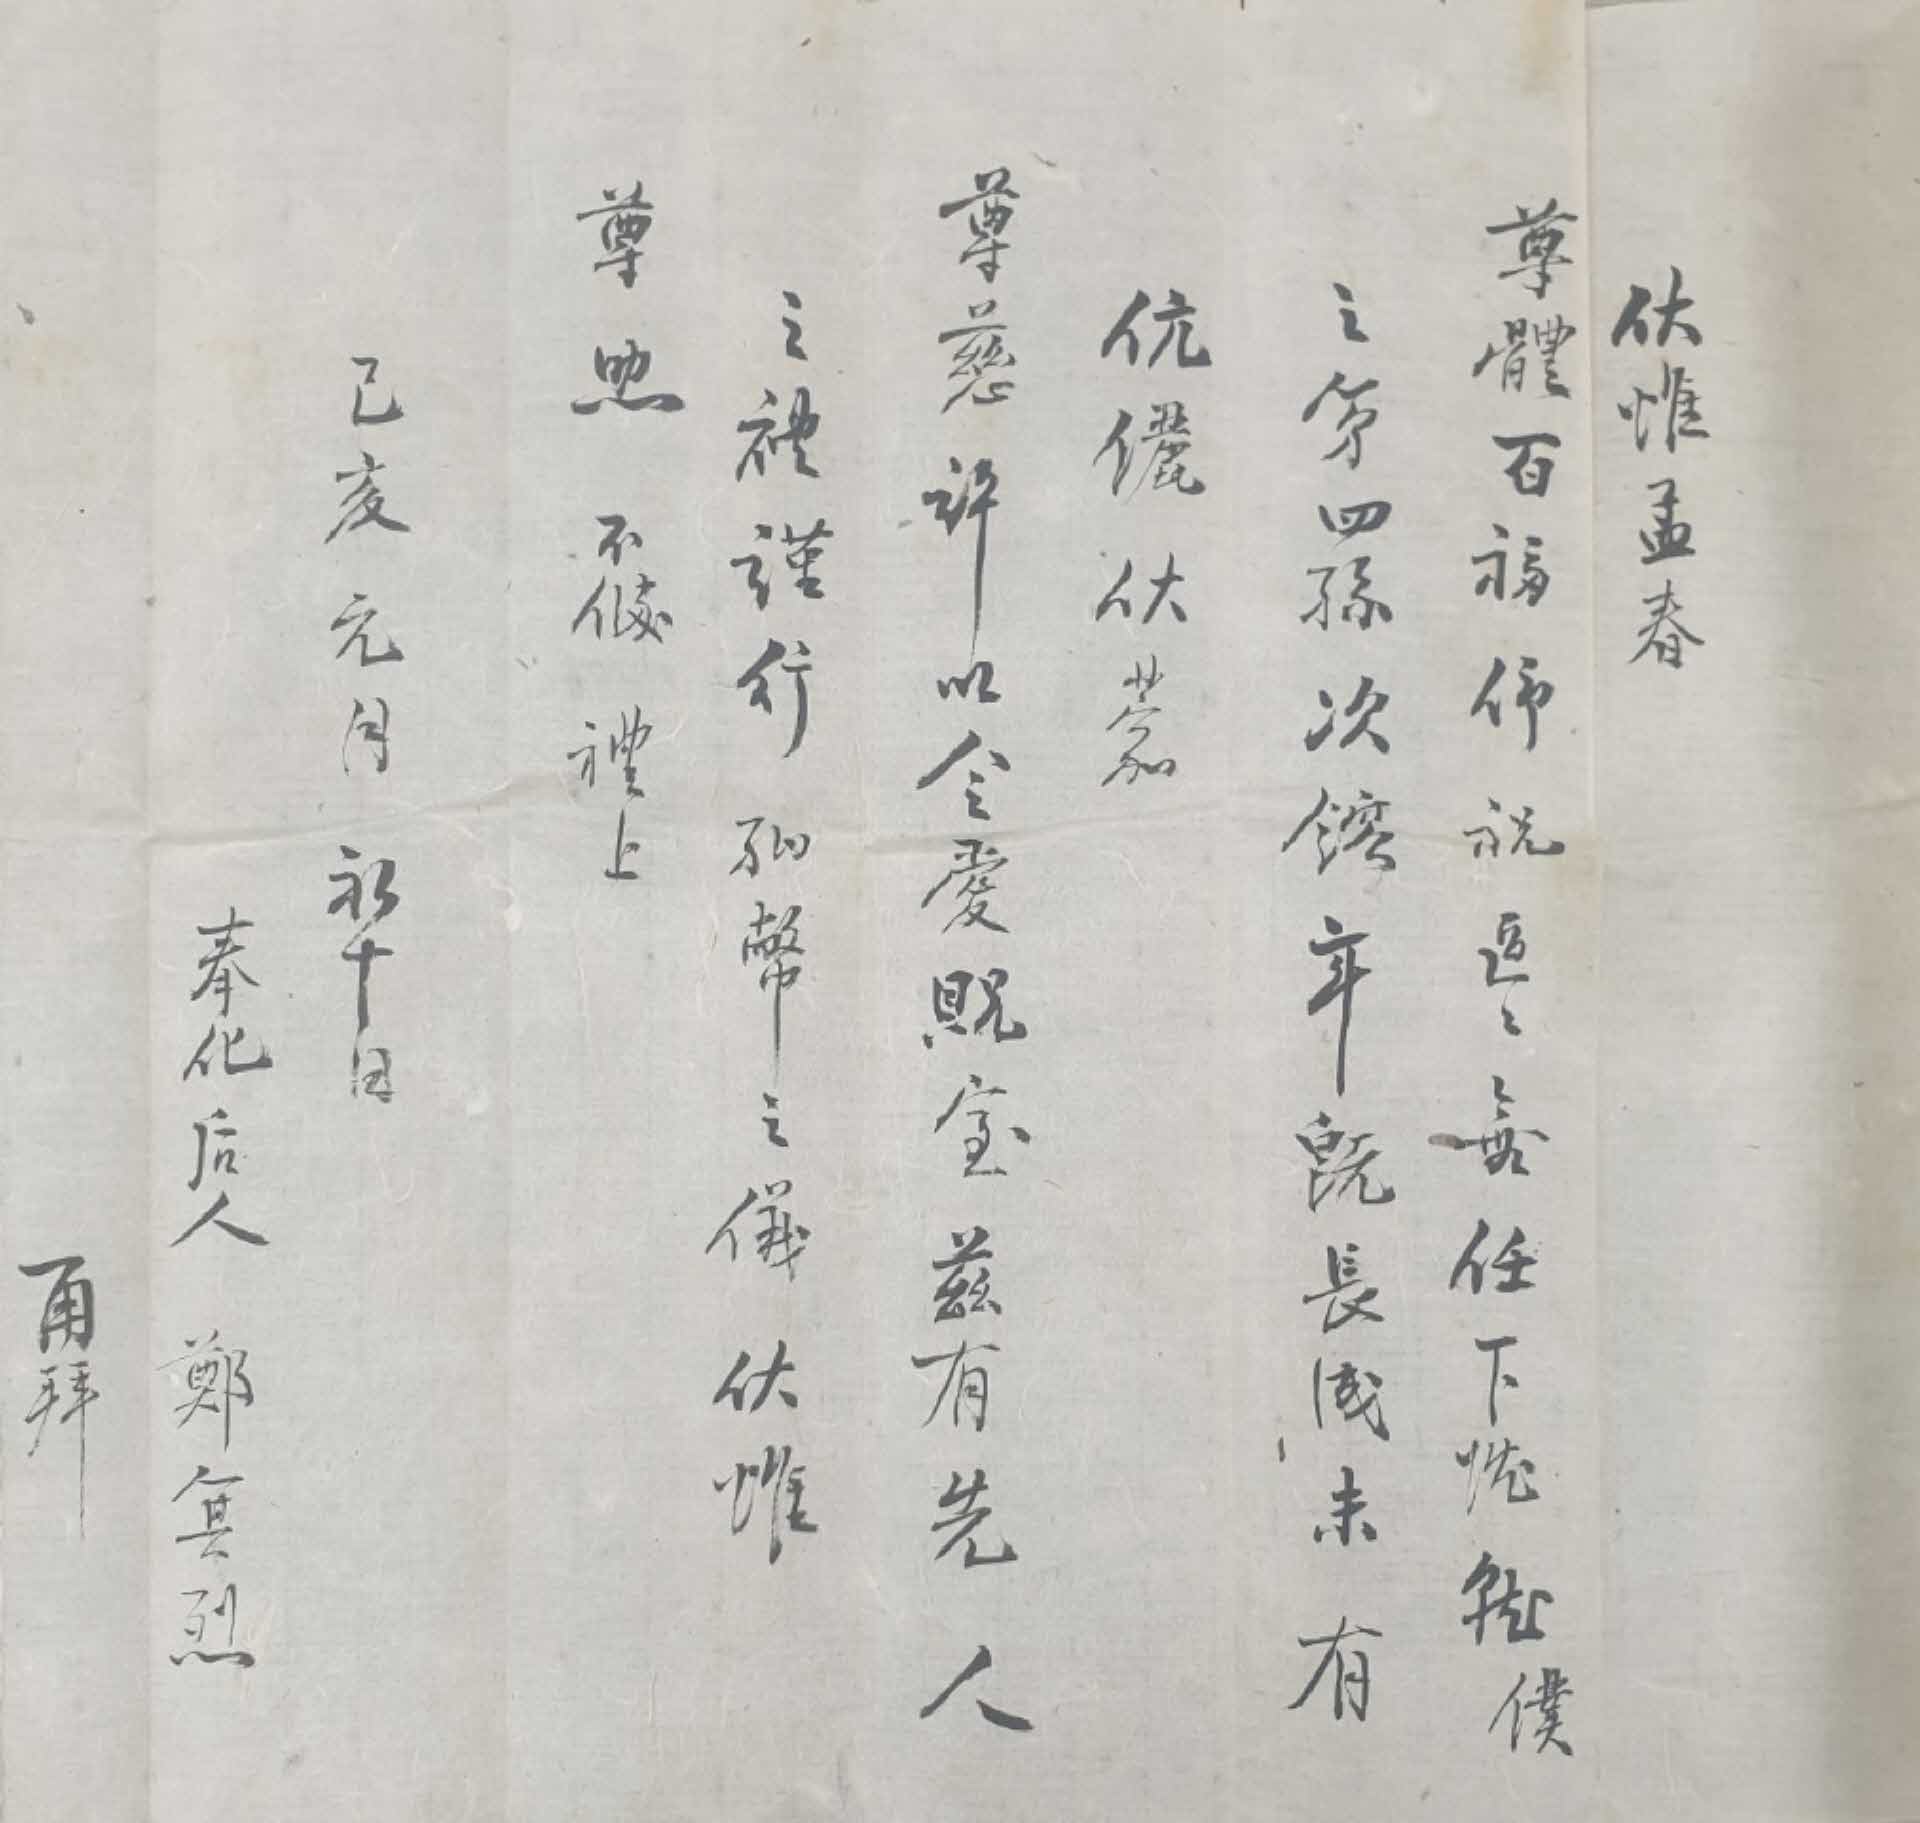 伏惟孟春
尊體百福仰祝區〻無任下悅就僕
之第四孫次鎔年旣長成未有
伉儷伏蒙
尊慈許以令愛貺室玆有先人
之禮謹行納幣之儀伏惟
尊照 不備 禮上
己亥元月初十日
奉化后人 鄭 烈
再拜